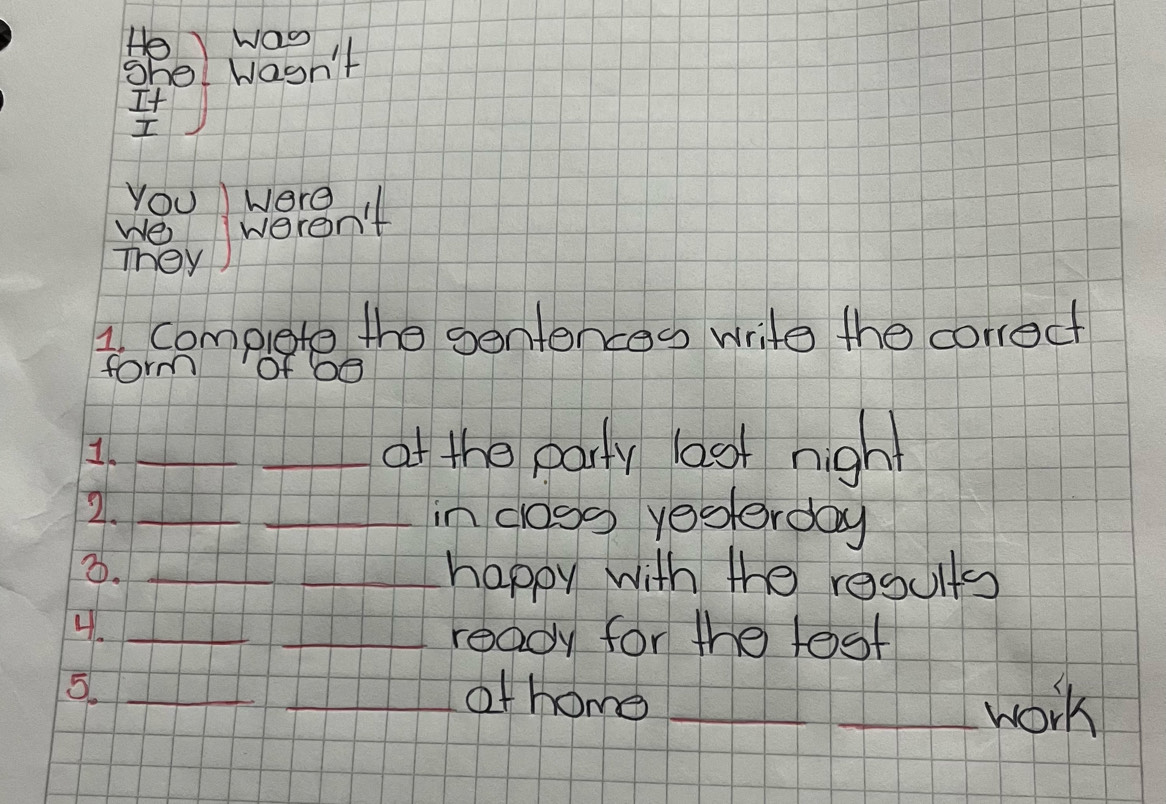 He was
She wasn't
It
I
You were
We weren't
They
1. Complete the sentences write the correct
form of be
1. ____ ____ at the party last night
2. ____ ____ in class yesterday
3. ____ ____ happy with the results
4. ____ ____ ready for the test
5. ____ ____ at home ____ ____ work